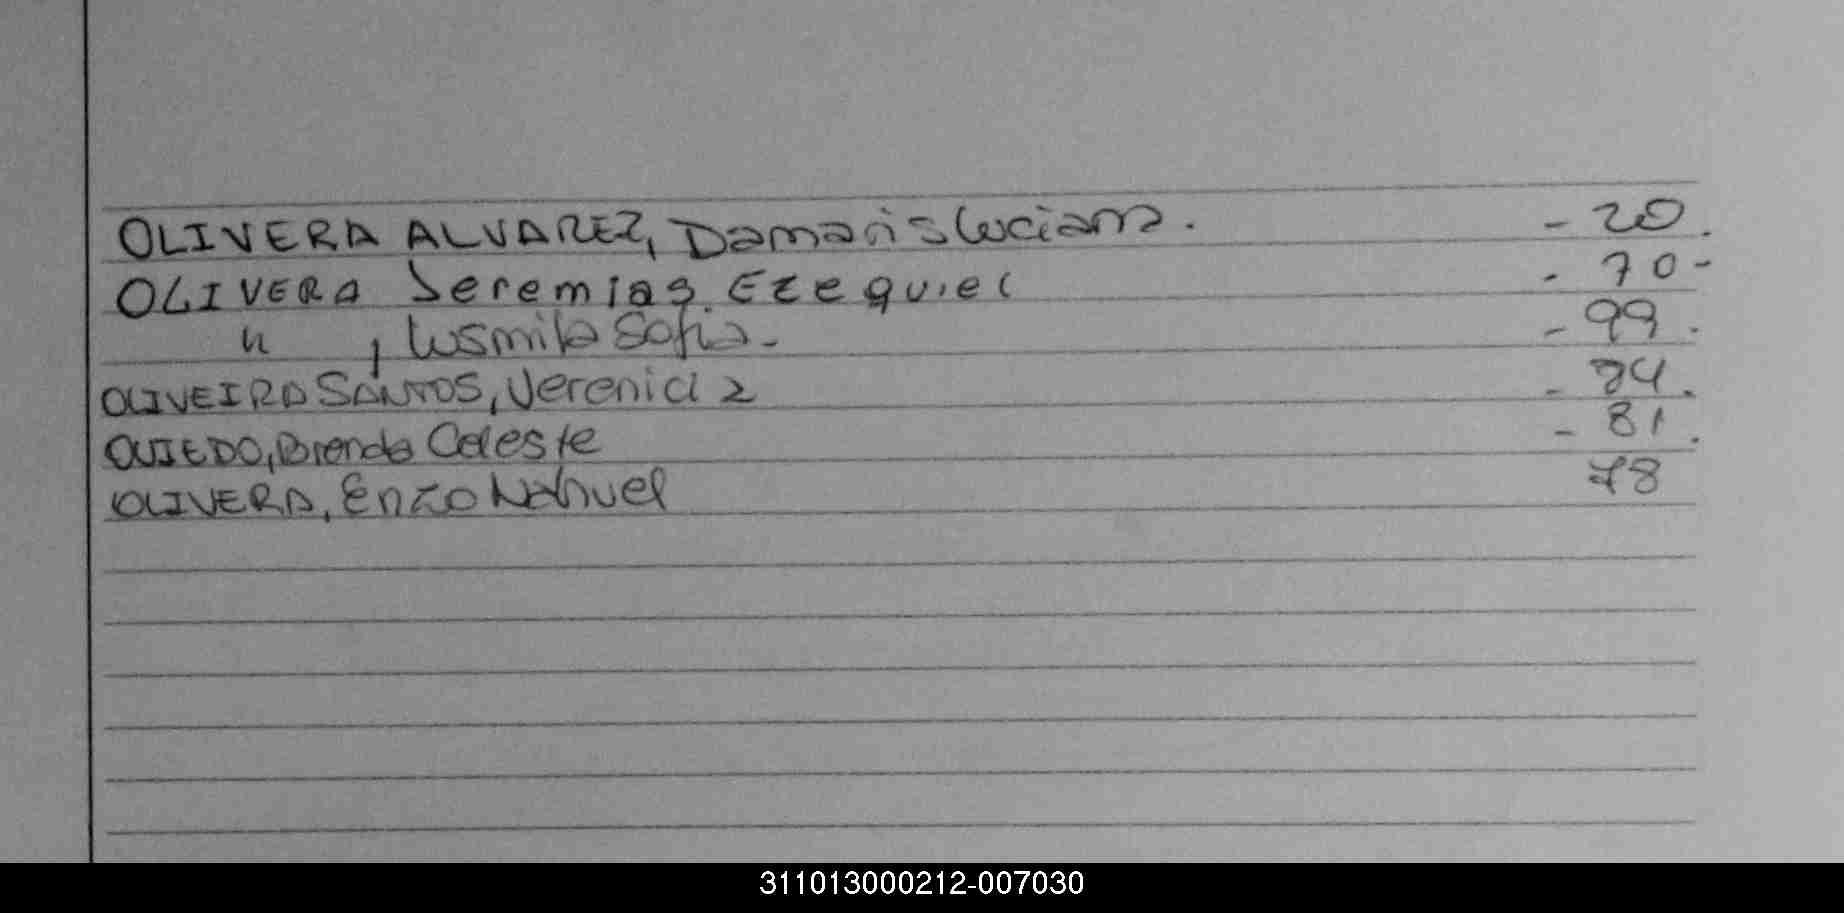 OLIVERA ALVAREZ, Damaris Luciana. - 20.
OLIVERA Jeremias Ezequiel - 70-
" , Lusmila Sofia. - 99.
OLIVEIRA SANTOS, Verenicia - 24.
OVIEDO, Brenda Celeste - 81.
OLIVERA, Enzo Nahuel 78
311013000212-007030